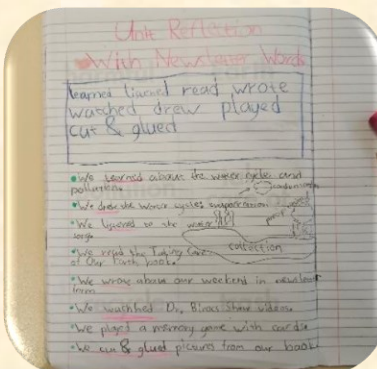 Unit Reflection
With Newsletter Words
learned listened read wrote
watched drew played
cut & glued
• We learned about the water cycle and
pollution.
• We drew the water cycle evaporation condensation
• We listened to the water
songs
collection
• We read the Taking Care
of Our Earth book.
• We wrote about our weekend in newsletter
• We watched Dr. Binocs Show videos.
• We played a memory game with cards
• We cut & glued pictures from our book